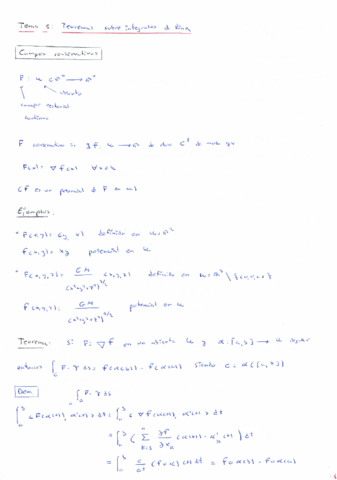 Tema 5: Teoremas sobre integrales de línea
Campos conservativos
F: U ⊂ ℝⁿ → ℝⁿ
abierto
campo vectorial
continuo
F conservativo si ∃ f: U → ℝ de clase C¹ de modo que
F(x) = ∇f(x) ∀x∈U
(f es un potencial de F en U)
Ejemplos:
• F(x,y) = (y, x) definido en U = ℝ²
f(x,y) = xy potencial en U
• F(x,y,z) = GM / (x²+y²+z²)^{3/2} (x,y,z) definido en U = ℝ³ \ {(0,0,0)}
f(x,y,z) = GM / (x²+y²+z²)^{1/2} potencial en U
Teorema: Si F = ∇f en un abierto U y α: [a,b] → U regular
entonces ∫_C F · T ds = f(α(b)) - f(α(a)) siendo C = α([a,b])
Dem ∫_C F · T ds =
∫_a^b <F(α(t)), α'(t)> dt = ∫_a^b <∇f(α(t)), α'(t)> dt
= ∫_a^b ( Σ_{k=1}^n ∂f/∂x_k (α(t)) · α'_k(t) ) dt
= ∫_a^b d/dt (f∘α)(t) dt = f∘α(b) - f∘α(a)